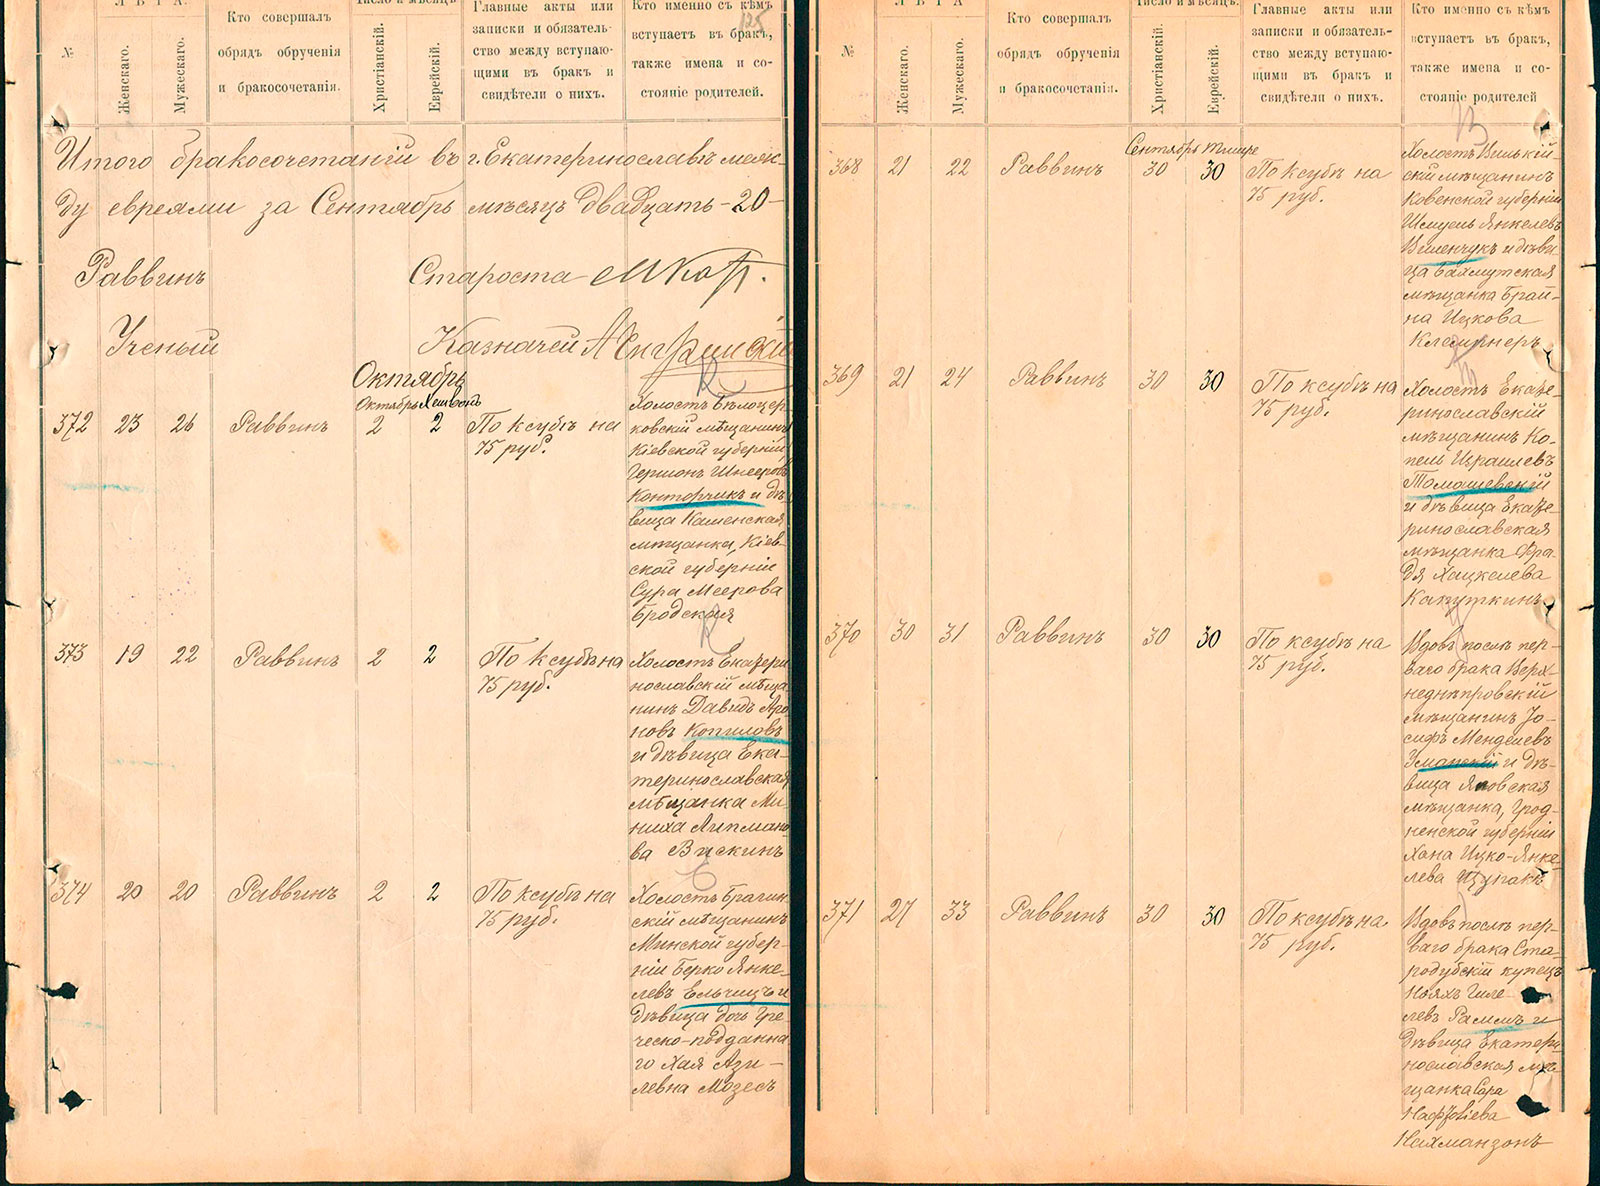 №
ЛѢТА.
Женскаго.
Мужескаго.
Кто совершалъ
обрядъ обрученія
и бракосочетанія.
Число и мѣсяцъ.
Христіанскій.
Еврейскій.
Главные акты или
записки и обязатель-
ство между вступаю-
щими въ бракъ и
свидѣтели о нихъ.
Кто именно съ кѣмъ
вступаетъ въ бракъ,
также имена и со-
стояніе родителей.
125
Итого бракосочетаній въ г. Екатеринославѣ меж-
ду евреями за Сентябрь мѣсяцъ двадцать -20-
Раввинъ
Староста
Ученый
Казначей
Октябрь
Октябрь Хешвонъ
372 23 26 Раввинъ 2 2
По ксубѣ на
75 руб.
Холостъ Бѣлоцер-
ковскій мѣщанинъ
Кіевской губерніи
Гершонъ Шнееровъ
Конторчикъ и дѣ-
вица Каменская
мѣщанка, Кіев-
ской губерніи
Сура Меерова
Бродская
373 19 22 Раввинъ 2 2
По ксубѣ на
75 руб.
Холостъ Екатери
нославскій мѣща
нинъ Давидъ Аро
новъ Копиловъ
и дѣвица Ека-
теринославская
мѣщанка Ми-
ниха Липмано
ва Вискинъ
374 20 20 Раввинъ 2 2
По ксубѣ на
75 руб.
Холостъ Брагин
скій мѣщанинъ
Минской губер-
ніи Берко Янке-
левъ Ельчицъ и
дѣвица дочь Гре
ческо-подданна
го Хая Ази-
левна Мозесъ
№
ЛѢТА
Женскаго.
Мужескаго.
Кто совершалъ
обрядъ обрученія
и бракосочетанія.
Число и мѣсяцъ.
Христіанскій.
Еврейскій.
Главные акты или
записки и обязатель-
ство между вступаю-
щими въ бракъ и
свидѣтели о нихъ.
Кто именно съ кѣмъ
вступаетъ въ бракъ,
также имена и со-
стояніе родителей
Сентябрь Тишре
368 21 22 Раввинъ 30 30
По ксубѣ на
75 руб.
Холостъ Вилькій-
скій мѣщанинъ
Ковенской губерніи
Шмуель Янкелевъ
Виленчукъ и дѣви-
ца Бахмутская
мѣщанка Брай-
на Ицкова
Клейнеръ
369 21 24 Раввинъ 30 30
По ксубѣ на
75 руб.
Холостъ Екате-
ринославскій
мѣщанинъ Ко-
пель Израилевъ
Томашевскій
и дѣвица Екате-
ринославская
мѣщанка Фра-
дя Хацкелева
Капуткинъ
370 30 31 Раввинъ 30 30
По ксубѣ на
75 руб.
Вдовъ послѣ пер-
ваго брака Верх-
неднѣпровскій
мѣщанинъ Іо-
сифъ Менделевъ
Уманскій и дѣ-
вица Яновская
мѣщанка, Грод-
ненской губерніи
Хана Ицко-Янке-
лева Щупакъ
371 27 33 Раввинъ 30 30
По ксубѣ на
75 руб.
Вдовъ послѣ пер-
ваго брака Ста-
родубскій купецъ
Ноахъ Гиле-
левъ Раммъ и
дѣвица Екатери-
нославская мѣ-
щанка Сара
Нафтолiева
Нахманзонъ